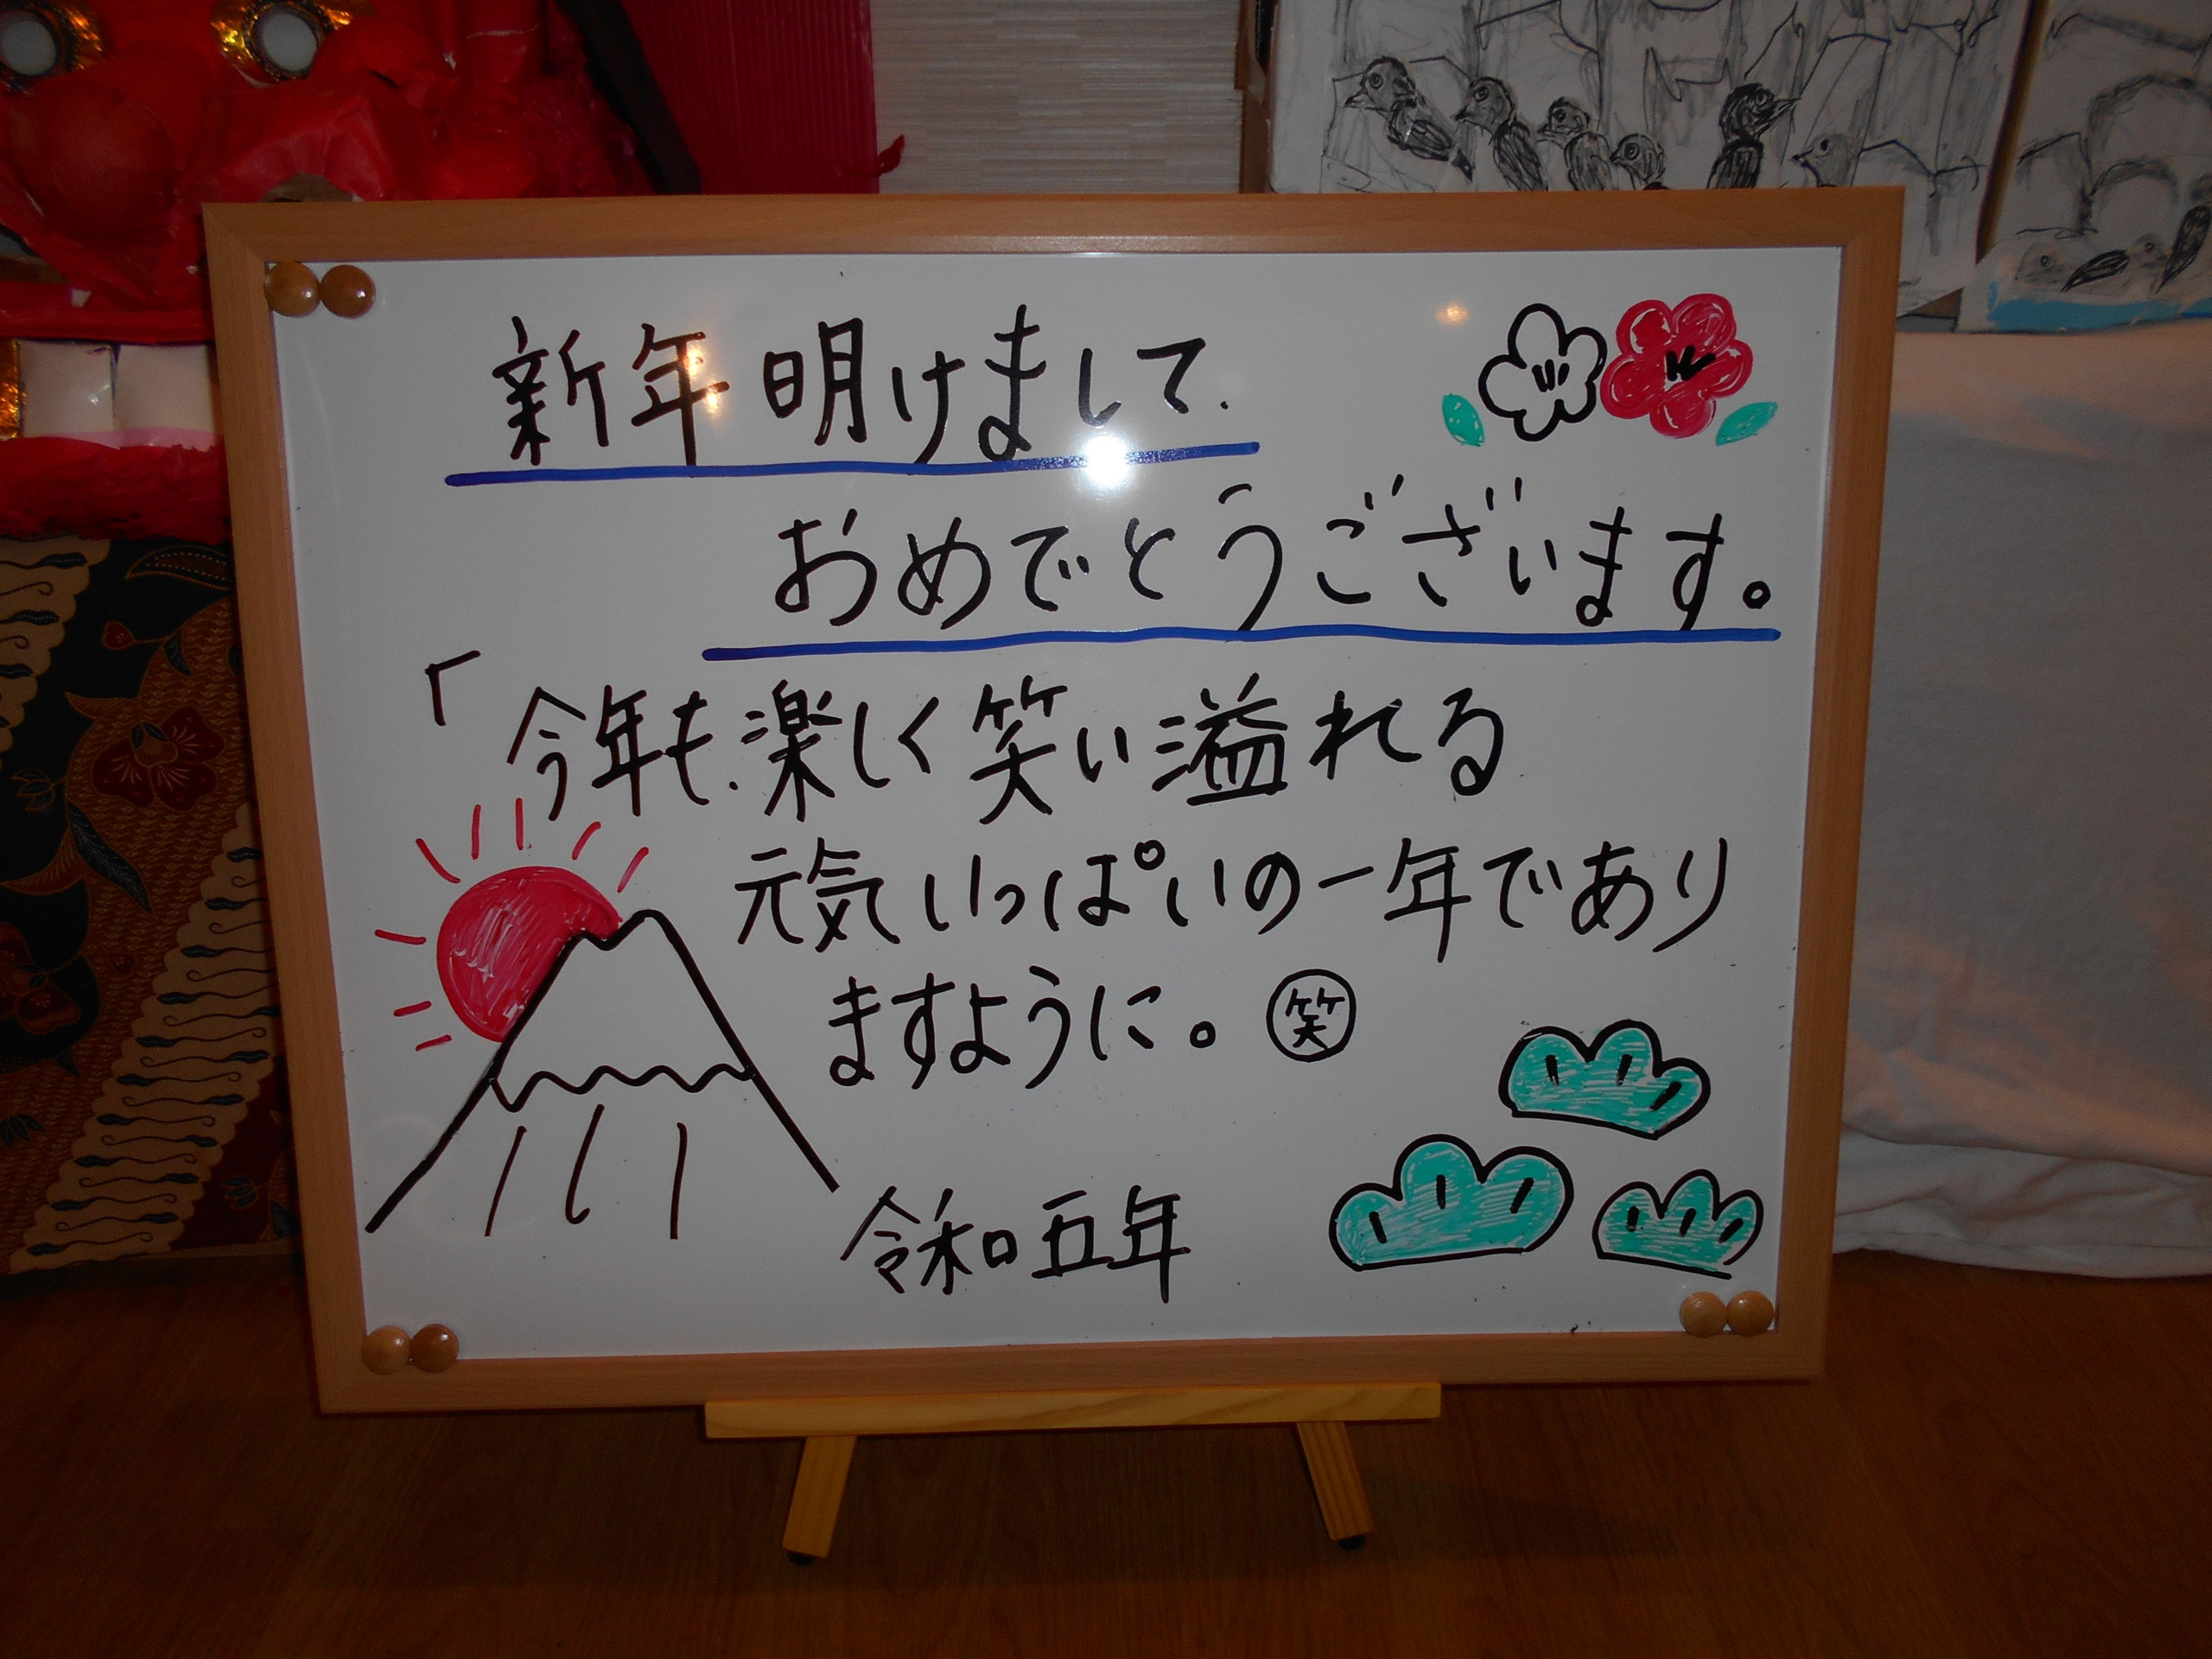 新年明けまして
おめでとうございます。
「今年も楽しく笑い溢れる
元気いっぱいの一年であり
ますように。㊗
令和五年